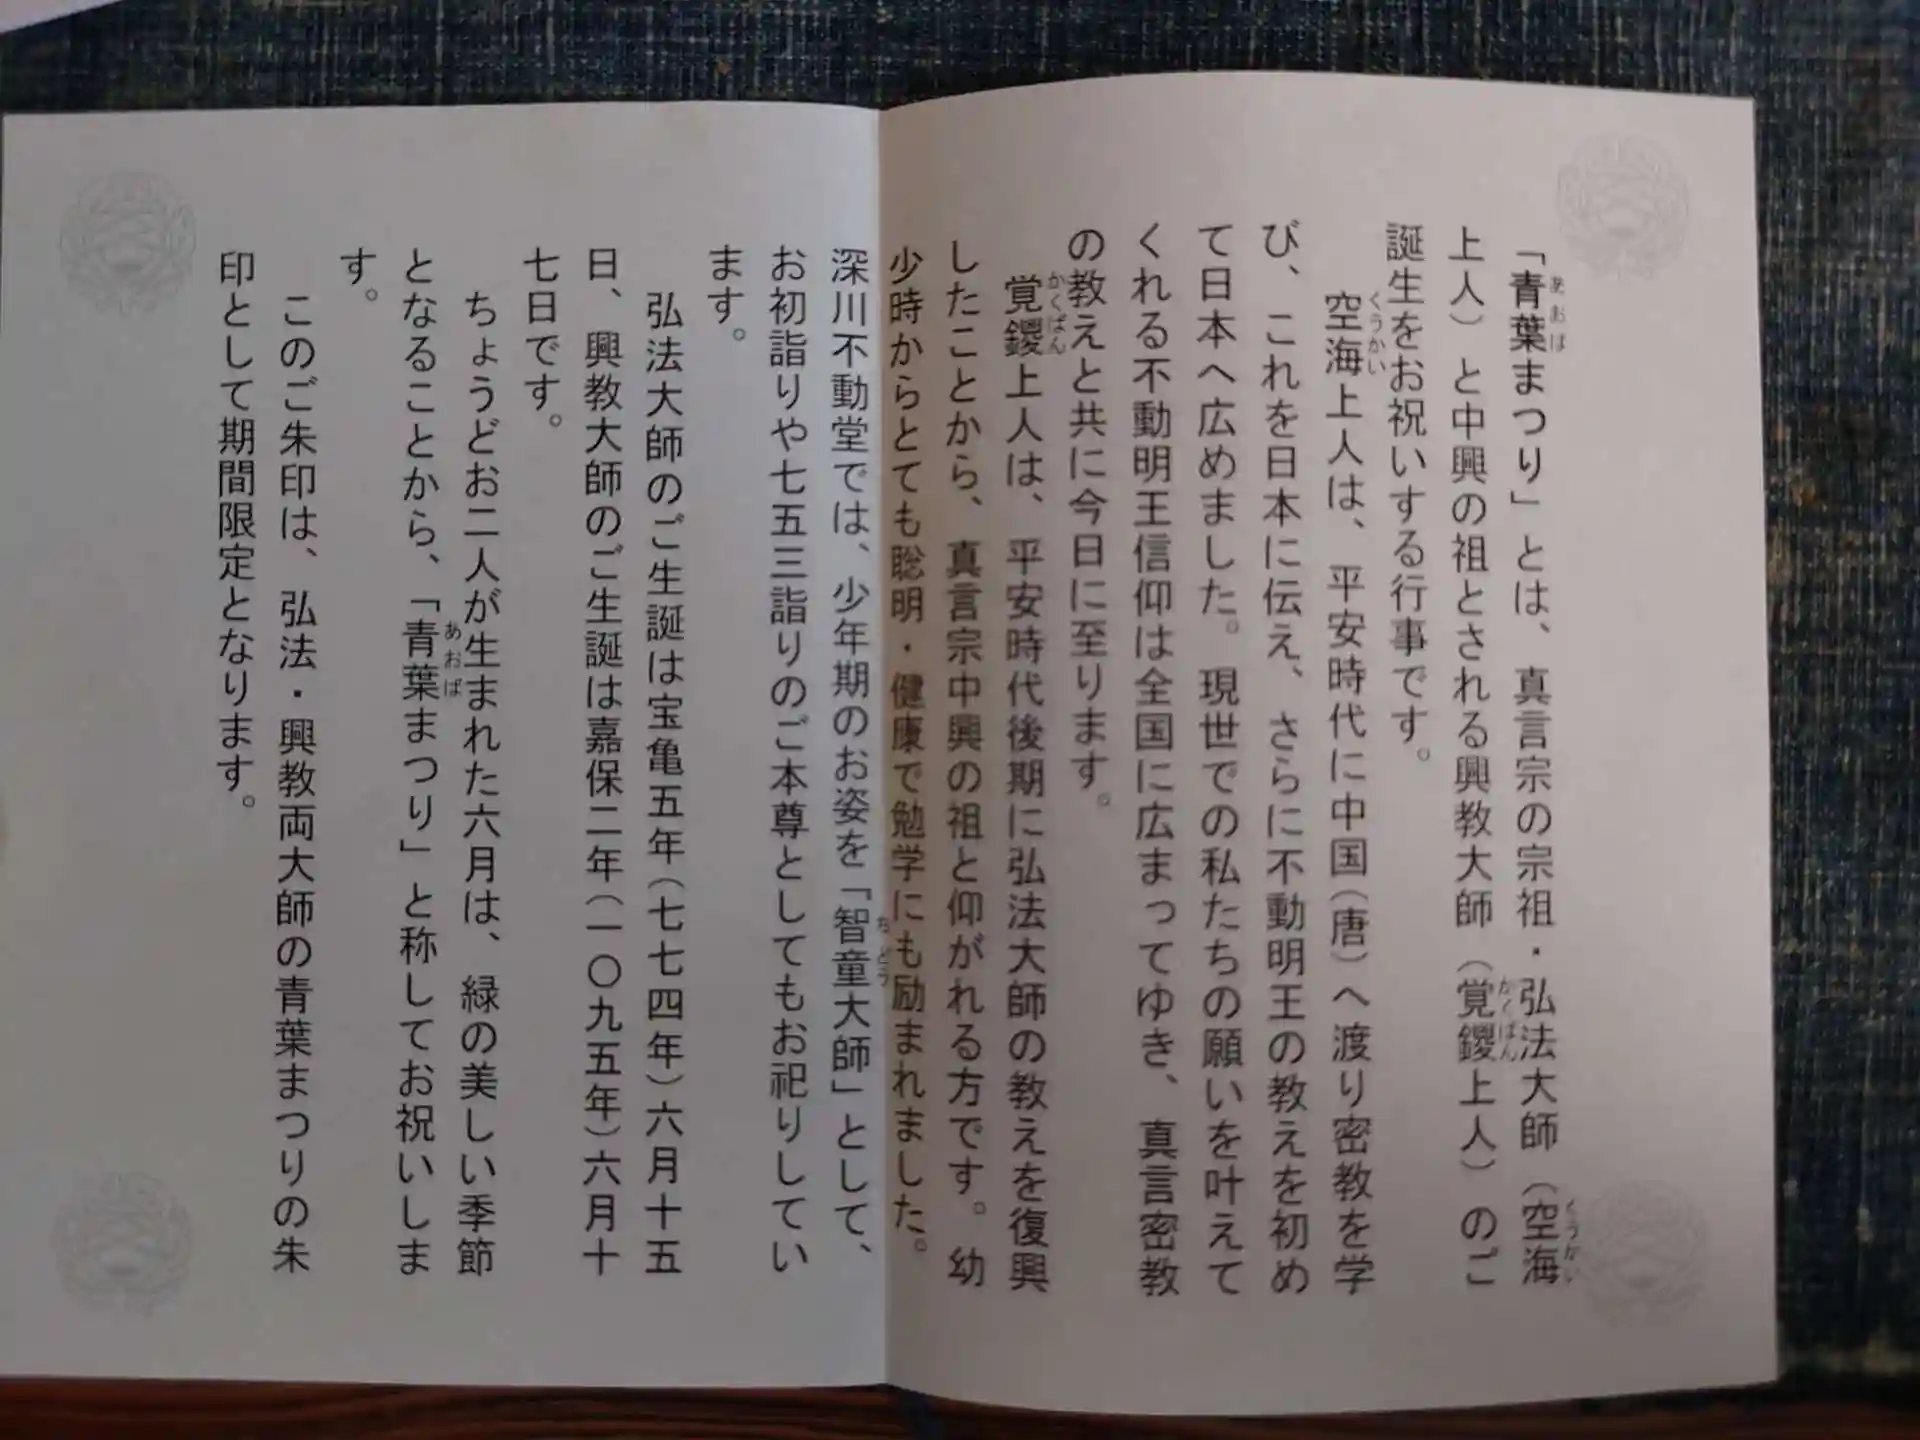 「青葉まつり」とは、真言宗の宗祖・弘法大師（空海
上人）と中興の祖とされる興教大師（覚鑁上人）のご
誕生をお祝いする行事です。
空海上人は、平安時代に中国（唐）へ渡り密教を学
び、これを日本に伝え、さらに不動明王の教えを初め
て日本へ広めました。現世での私たちの願いを叶えて
くれる不動明王信仰は全国に広まってゆき、真言密教
の教えと共に今日に至ります。
覚鑁上人は、平安時代後期に弘法大師の教えを復興
したことから、真言宗中興の祖と仰がれる方です。幼
少時からとても聡明・健康で勉学にも励まれました。
深川不動堂では、少年期のお姿を「智童大師」として、
お初詣りや七五三詣りのご本尊としてもお祀りしてい
ます。
弘法大師のご生誕は宝亀五年（七七四年）六月十五
日、興教大師のご生誕は嘉保二年（一〇九五年）六月十
七日です。
ちょうどお二人が生まれた六月は、緑の美しい季節
となることから、「青葉まつり」と称してお祝いしま
す。
このご朱印は、弘法・興教両大師の青葉まつりの朱
印として期間限定となります。